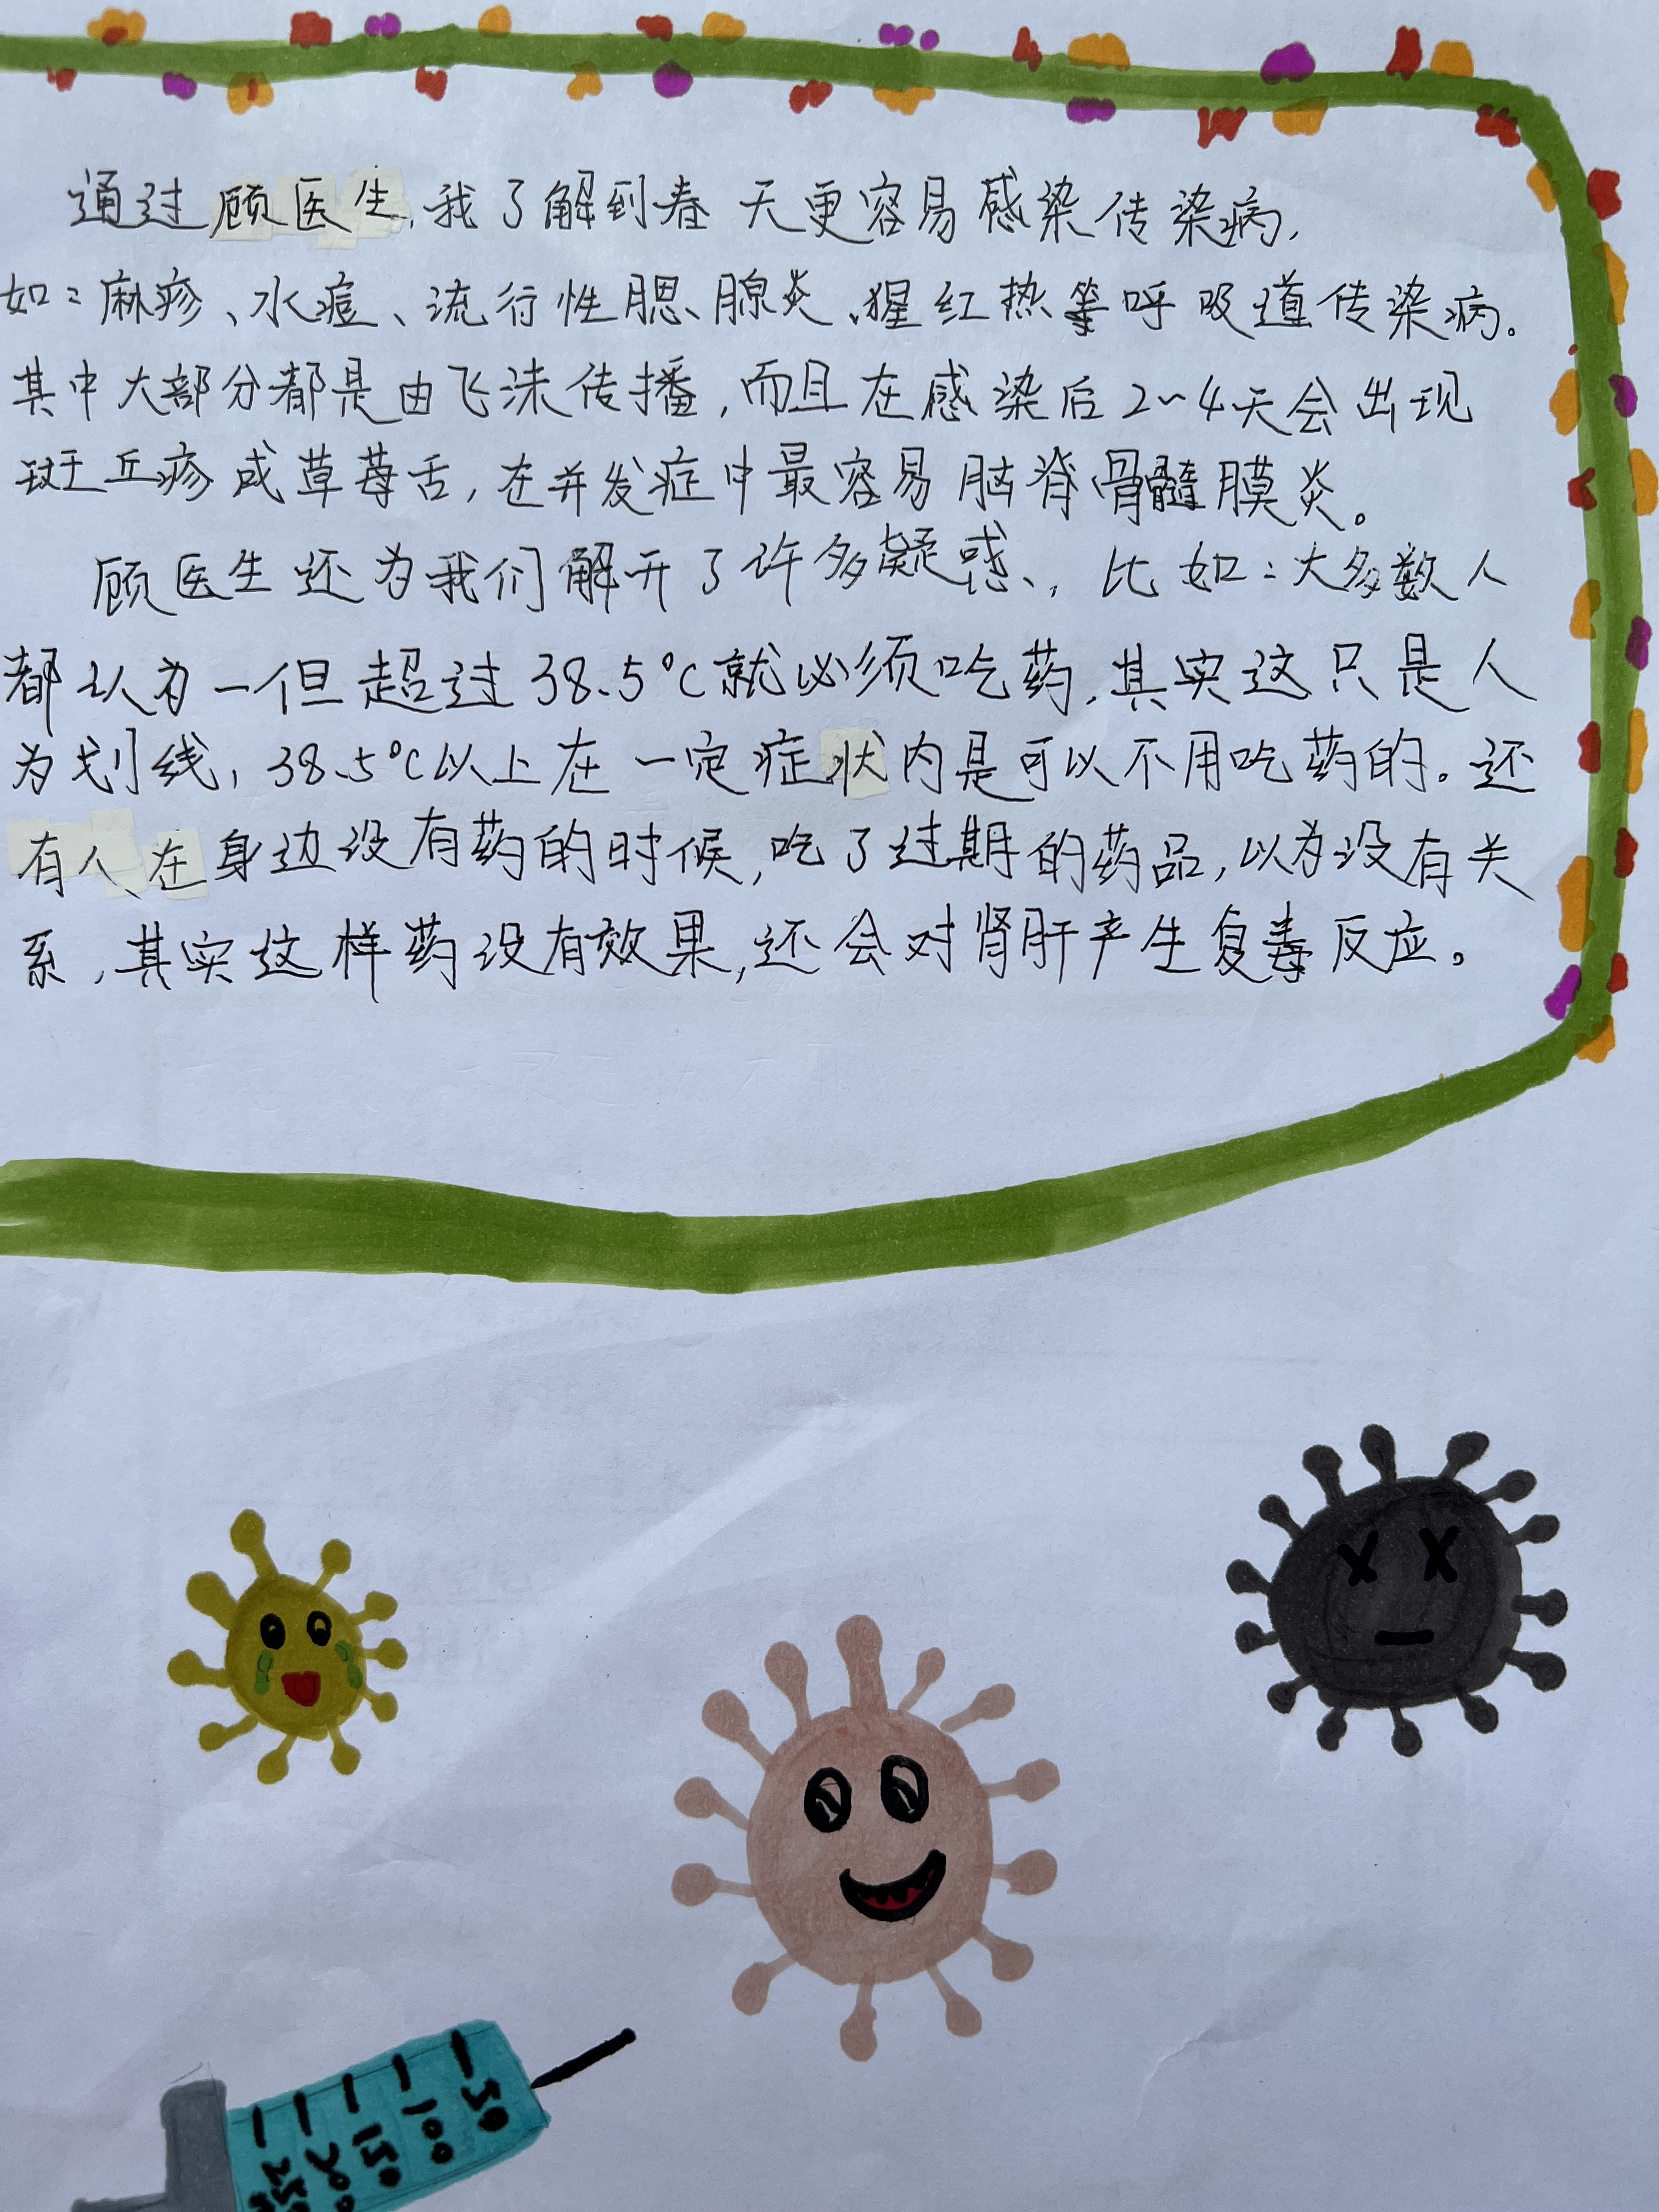 通过顾医生,我了解到春天更容易感染传染病,
如:麻疹、水痘、流行性腮、腺炎、猩红热等呼吸道传染病。
其中大部分都是由飞沫传播,而且在感染后2~4天会出现
斑丘疹成草莓舌,在并发症中最容易脑脊骨髓膜炎。
顾医生还为我们解开了许多凝惑、,比如:大多数人
都认为一但超过38.5°C就必须吃药,其实这只是人
为划线,38.5°C以上在一定症状内是可以不用吃药的。还
有人在身边没有药的时候,吃了过期的药品,以为没有关
系,其实这样药没有效果,还会对肾肝产生复毒反应。
50
100
150
200
250